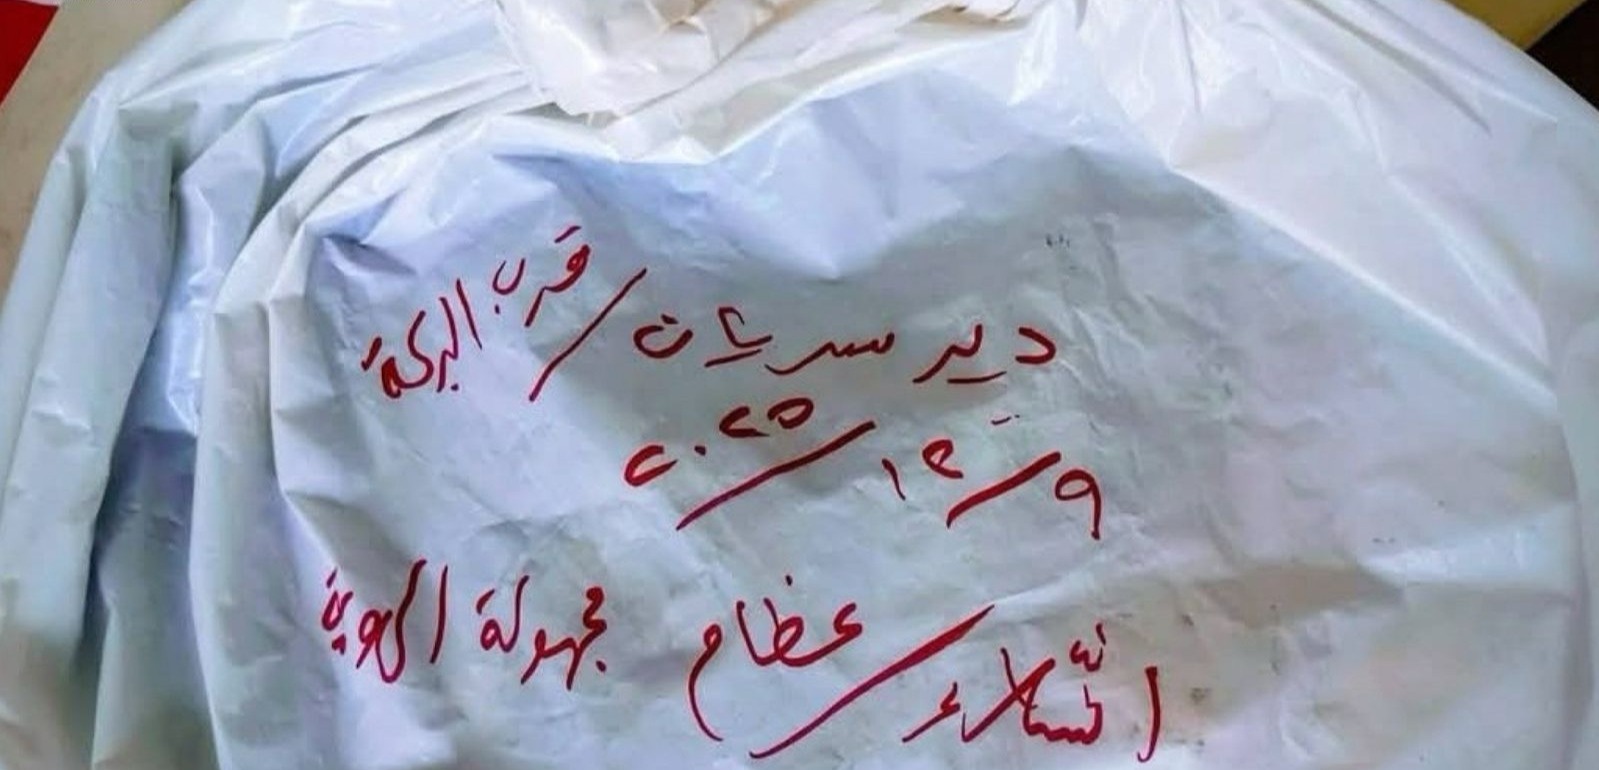 دير سريان / قرب البركة
٩/١٢/٢٠٢٥
اشلاء / عظام مجهولة الهوية